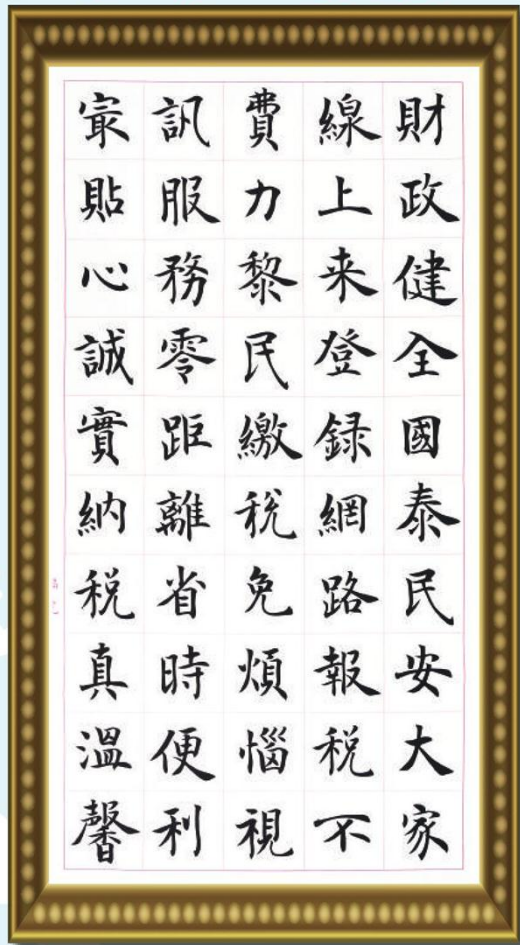 財政健全國泰民安大家
線上来登録網路報税不
費力黎民繳稅免煩惱視
訊服務零距離省時便利
㝡貼心誠實納税真溫馨